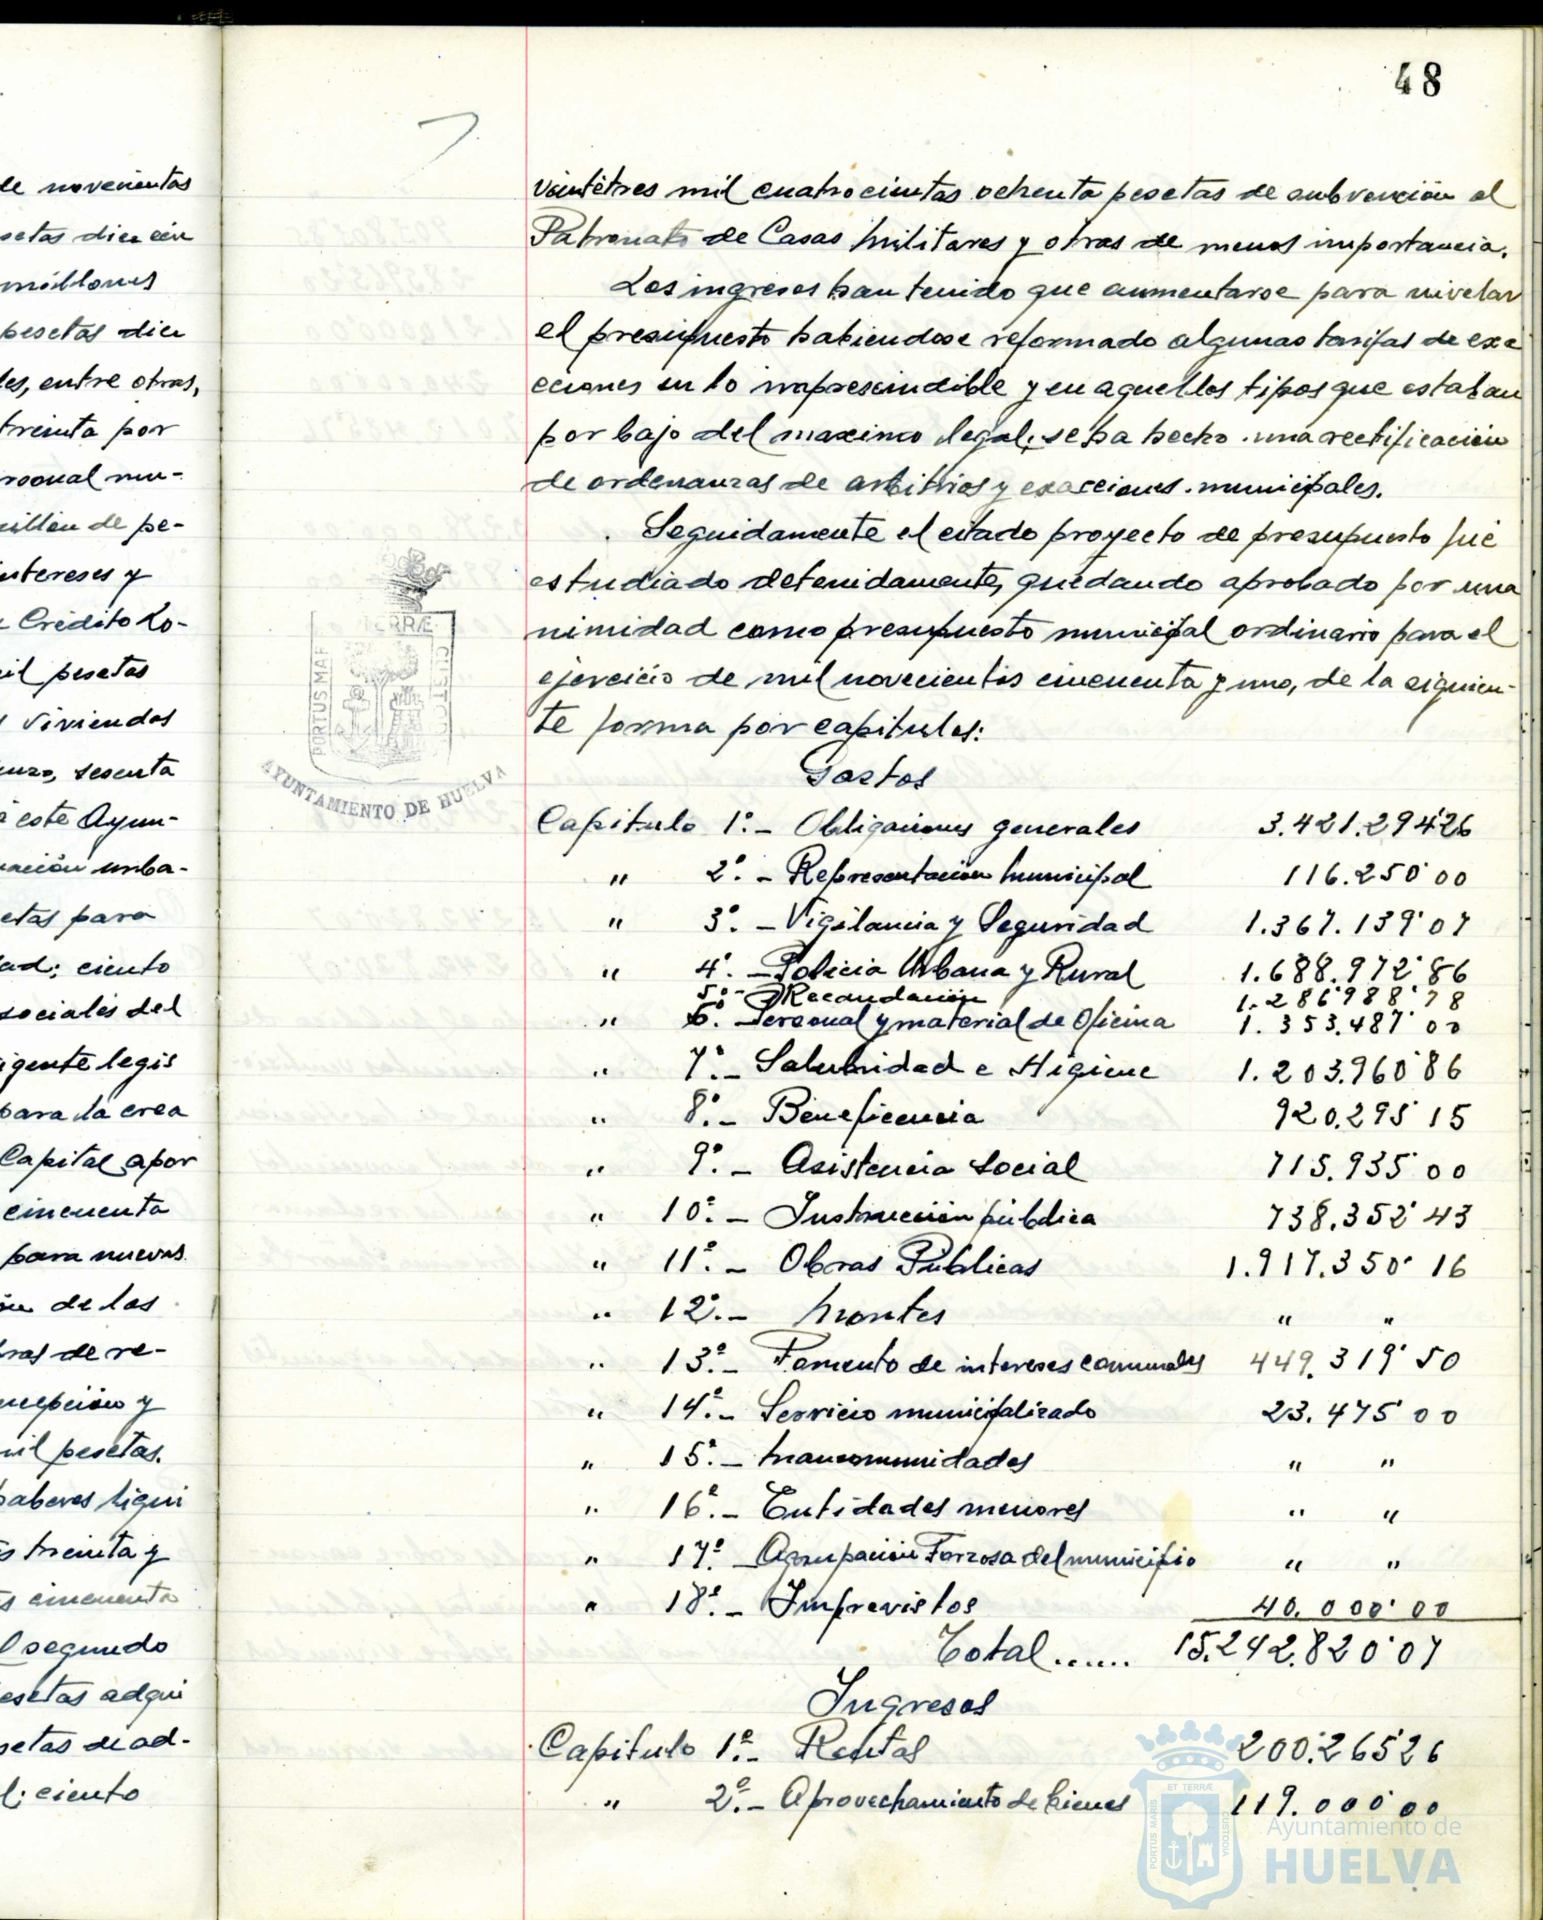 48
de novecientos
setas diez cen
millones
pesetas diez
les, entre otras,
treinta por
rsonal mu-
millón de pe-
intereses y
Crédito Lo-
il pesetas
viviendas
sesenta
a este Ayun-
unba-
etas para
ad; ciento
sociales del
igente legis
para la crea
Capital apor
cincuenta
para nuevas
de los
ras de re-
ncepción y
mil pesetas.
haberes liqui
s treinta y
s cincuenta
l segundo
esetas adqui
setas de ad-
l; ciento
veintitres mil cuatrocientas ochenta pesetas de subvención al
Patronato de Casas Militares y otras de menos importancia.
Los ingresos han tenido que aumentarse para nivelar
el presupuesto habiendose reformado algunas tarifas de exa
cciones en lo imprescindible y en aquellos tipos que estaban
por bajo del maximo legal; se ha hecho una rectificación
de ordenanzas de arbitrios y exacciones municipales.
Seguidamente el citado proyecto de presupuesto fué
estudiado detenidamente, quedando aprobado por una
nimidad como presupuesto municipal ordinario para el
ejercicio de mil novecientos cincuenta y uno, de la siguien-
te forma por capitulos:
TERRÆ
PORTUS MAR
CUSTOD
AYUNTAMIENTO DE HUELVA
Gastos
Capitulo 1º.- Obligaciones generales 3.421.294'26
" 2º.- Representación Municipal 116.250'00
" 3º.- Vigilancia y Seguridad 1.367.139'07
" 4º.- Policia Urbana y Rural 1.688.972'86
5º- Recaudación 1.286'988'78
" 6º. Personal y material de Oficina 1.353.487'00
" 7º.- Salubridad e Higiene 1.203.960'86
" 8º.- Beneficencia 920.295'15
" 9º.- Asistencia Social 715.935'00
" 10º.- Instrucción pública 738.352'43
" 11º.- Obras Públicas 1.917.350'16
" 12º.- Montes " "
" 13º.- Fomento de intereses comunales 449.319'50
" 14º.- Servicio municipalizado 23.475'00
" 15º.- Mancomunidades " "
" 16º.- Entidades menores " "
" 17º. Agrupación Forzosa del municipio " "
" 18º.- Imprevistos 40.000'00
Total...... 15.242.820'07
Ingresos
Capitulo 1º.- Rentas 200.265'26
" 2º.- Aprovechamiento de bienes 119.000'00
ET TERRÆ
PORTUS MARIS
CUSTODIA
Ayuntamiento de
HUELVA